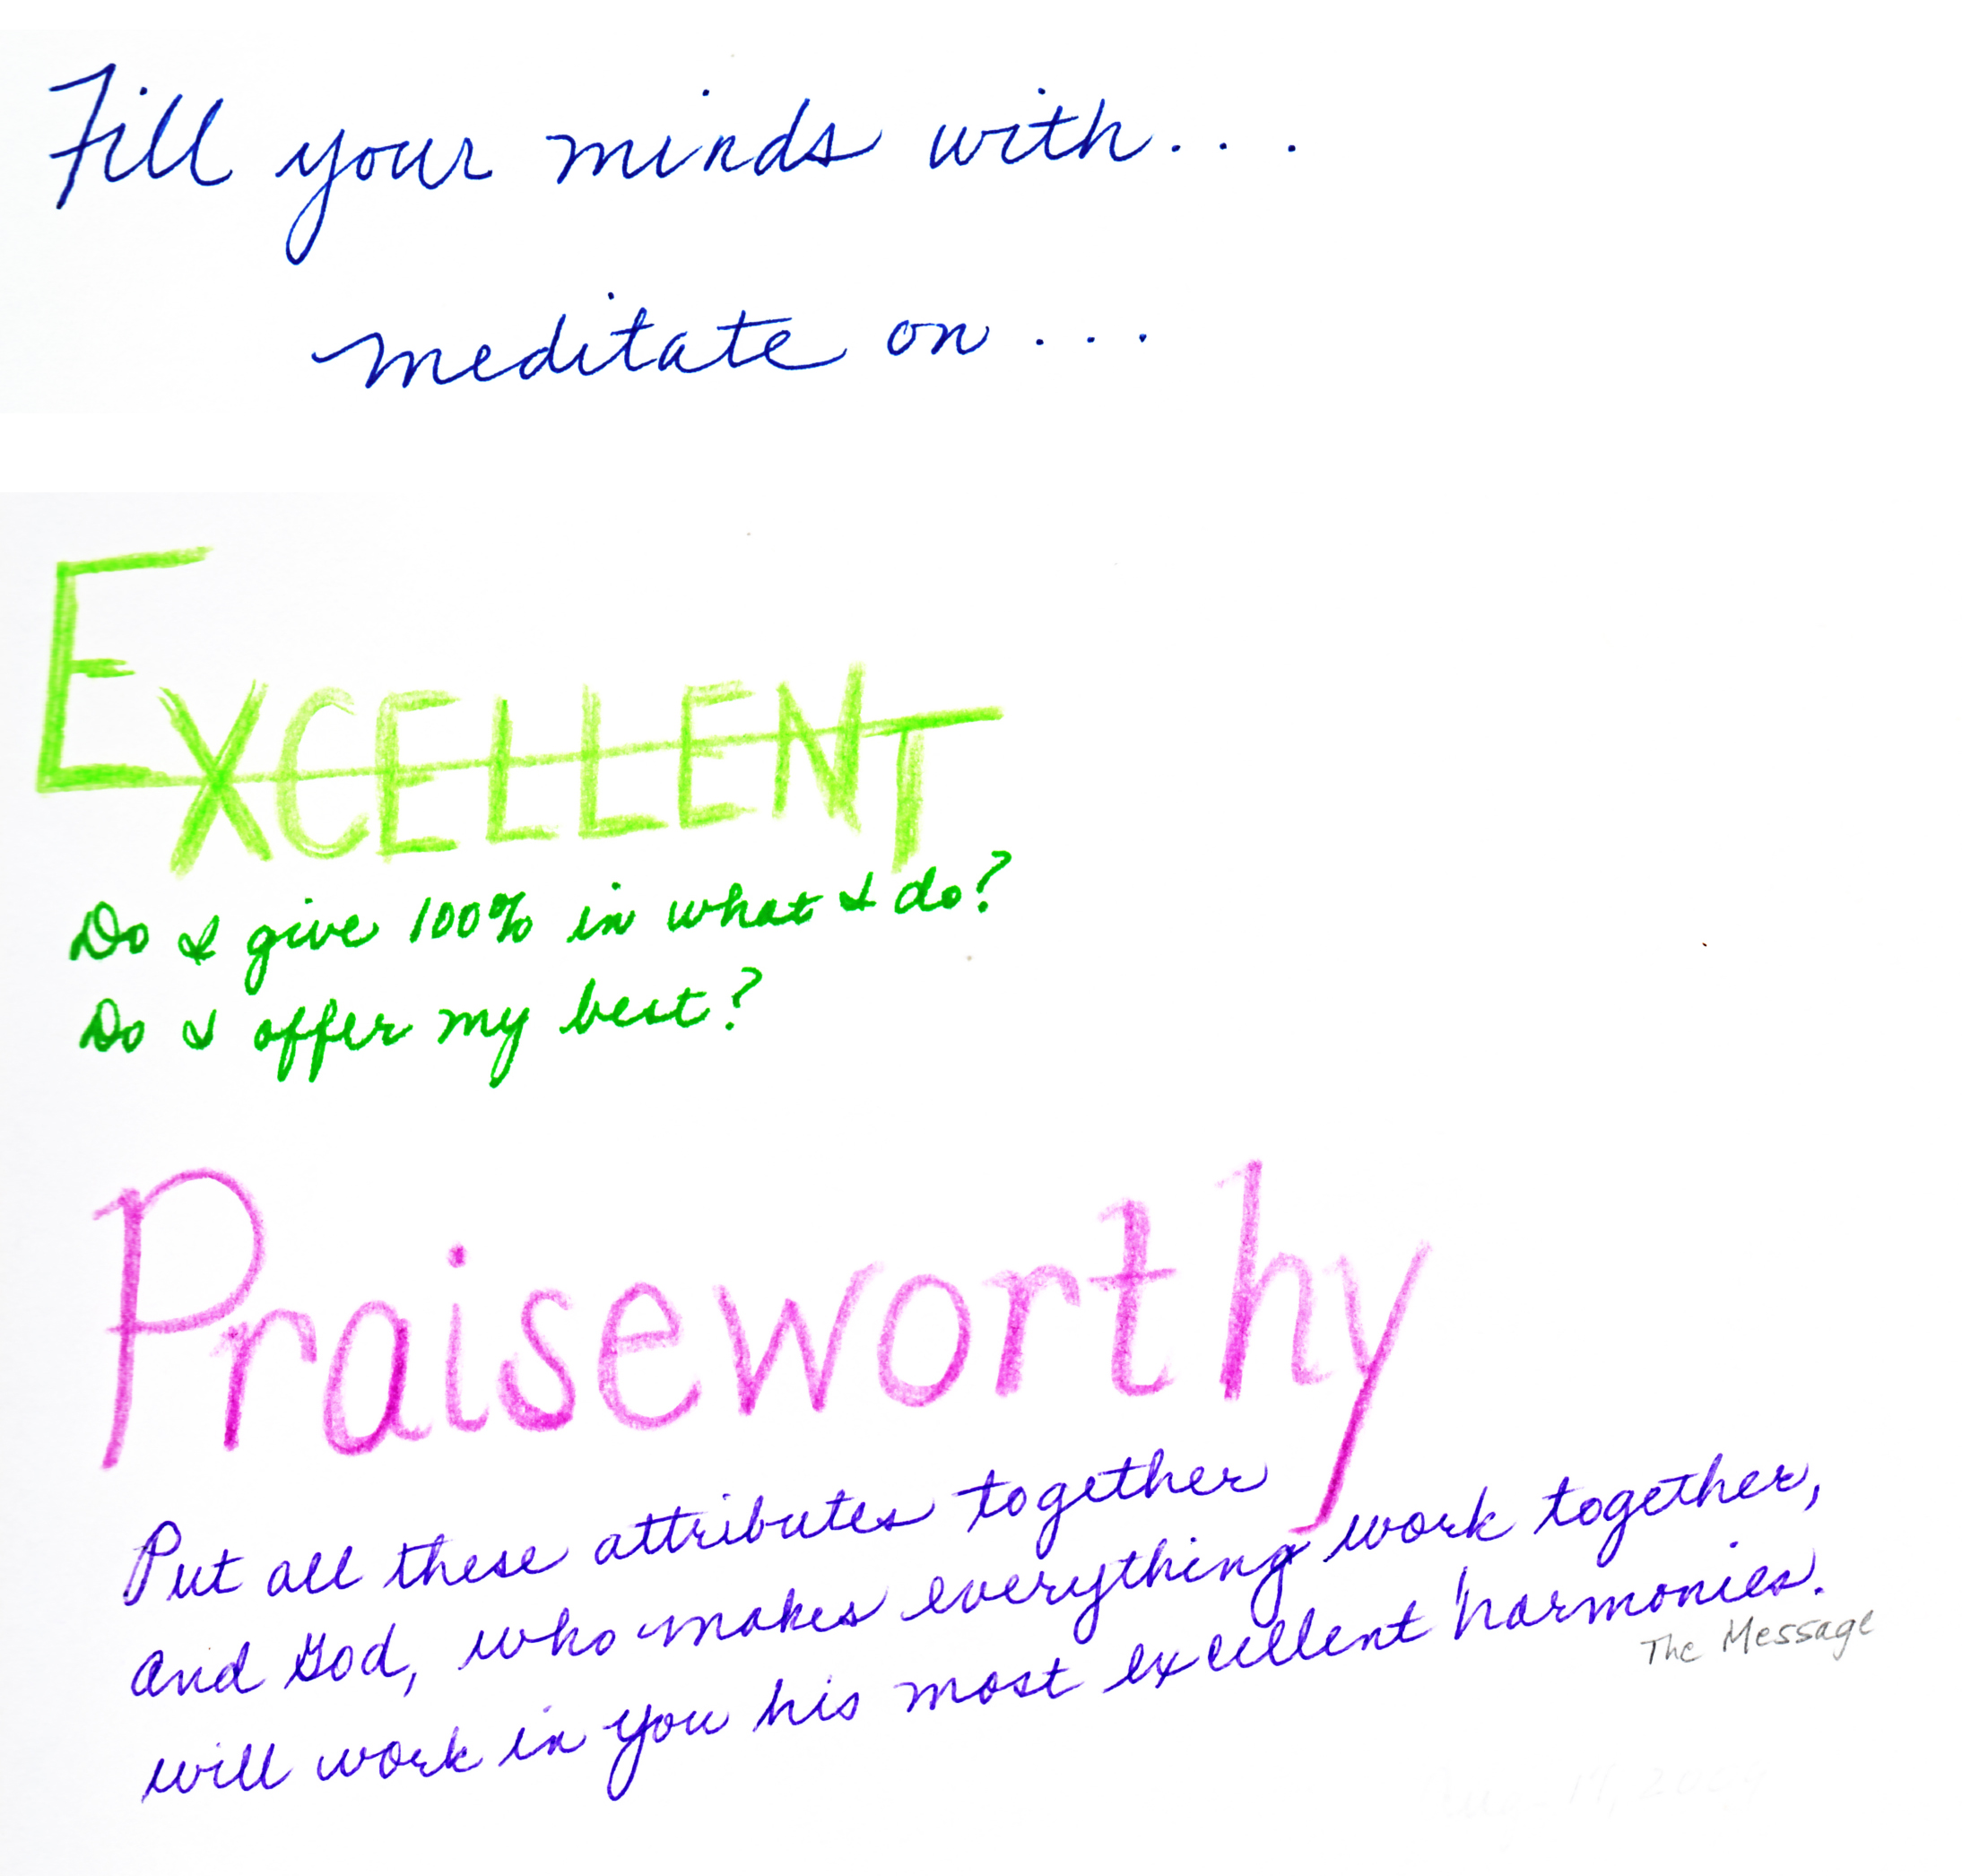 Fill your minds with...
meditate on...
EXCELLENT
Do I give 100% in what I do?
Do I offer my best?
Praiseworthy
Put all these attributes together
and God, who makes everything work together,
will work in you his most excellent harmonies.
The Message